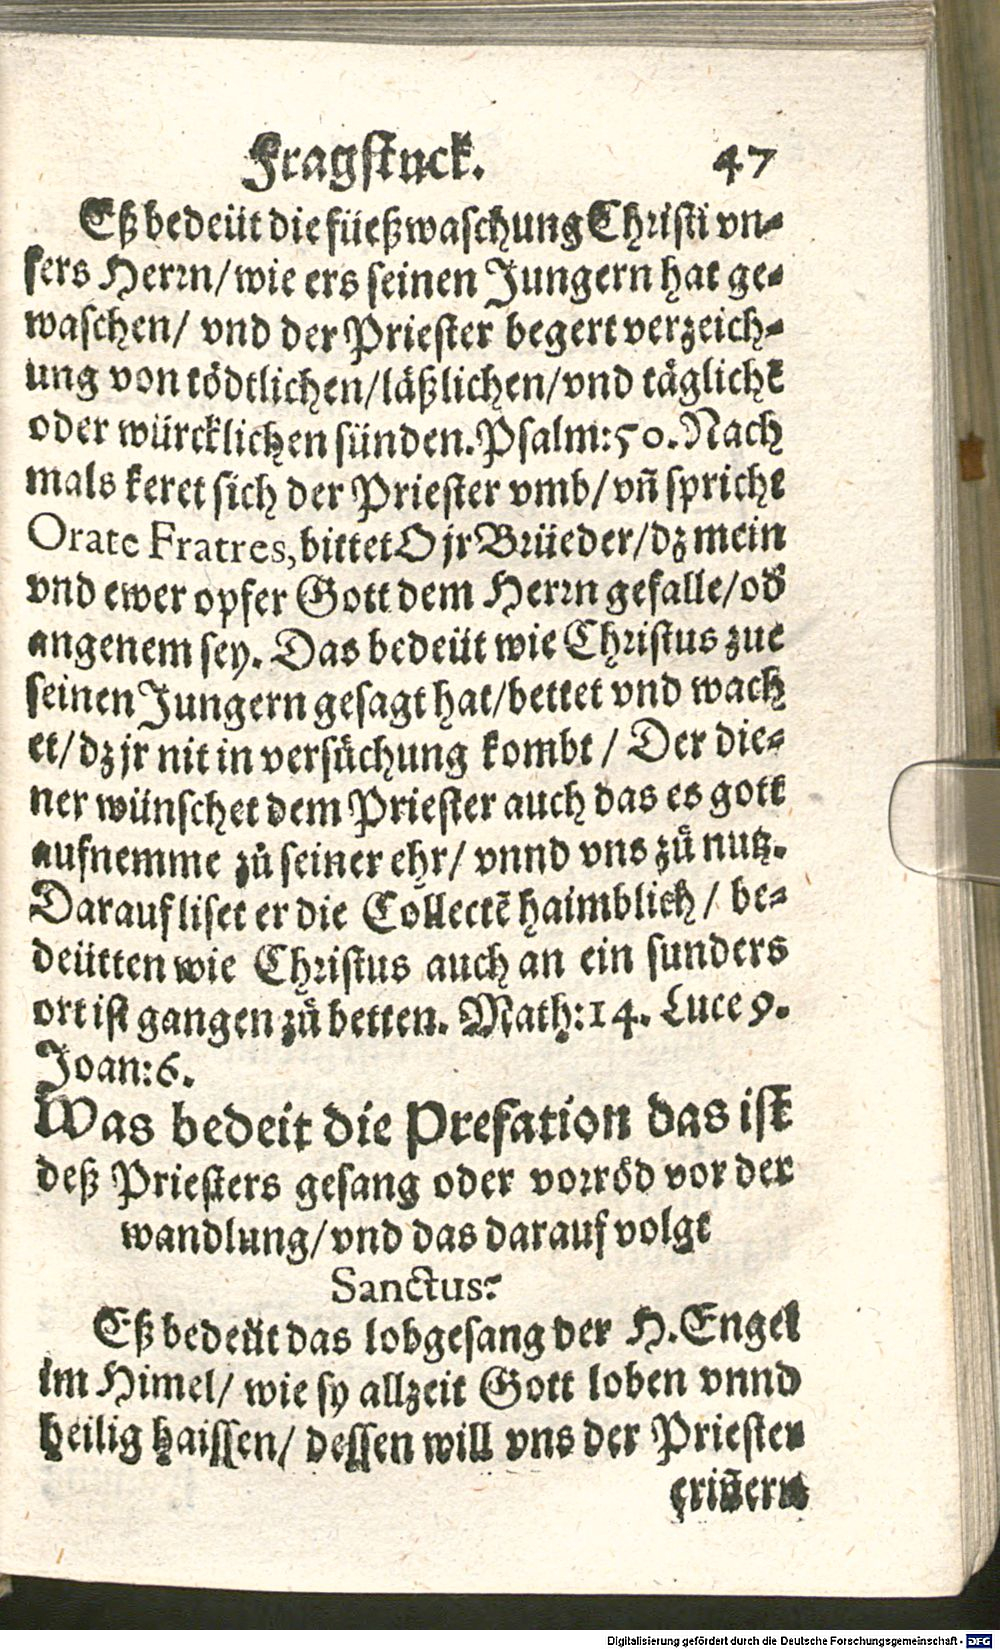 Fragstuck. 47
Eß bedeüt die füeßwaschung Christi vn-
sers Herrn/ wie ers seinen Jungern hat ge-
waschen/ vnd der Priester begert verzeich-
ung von tödtlichen/ läßlichen/ vnd täglichē
oder würcklichen sünden. Psalm: 50. Nach
mals keret sich der Priester vmb/ vñ spricht
Orate Fratres, bittet O jr Brüeder/ dz mein
vnd ewer opfer Gott dem Herrn gefalle/ od̕
angenem sey. Das bedeüt wie Christus zue
seinen Jungern gesagt hat/ bettet vnd wach
et/ dz jr nit in versůchung kombt / Der die-
ner wünschet dem Priester auch das es gott
aufnemme zů seiner ehr/ vnnd vns zů nutz.
Darauf liset er die Collectē haimblich/ be-
deütten wie Christus auch an ein sunders
ort ist gangen zů betten. Math: 14. Luce 9.
Joan: 6.
Was bedeit die Prefation das ist
deß Priesters gesang oder vorröd vor der
wandlung/ vnd das darauf volgt
Sanctus?
Eß bedeüt das lobgesang der H. Engel
im Himel/ wie sy allzeit Gott loben vnnd
heilig haissen/ dessen will vns der Priester
eriñern
Digitalisierung gefördert durch die Deutsche Forschungsgemeinschaft - DFG